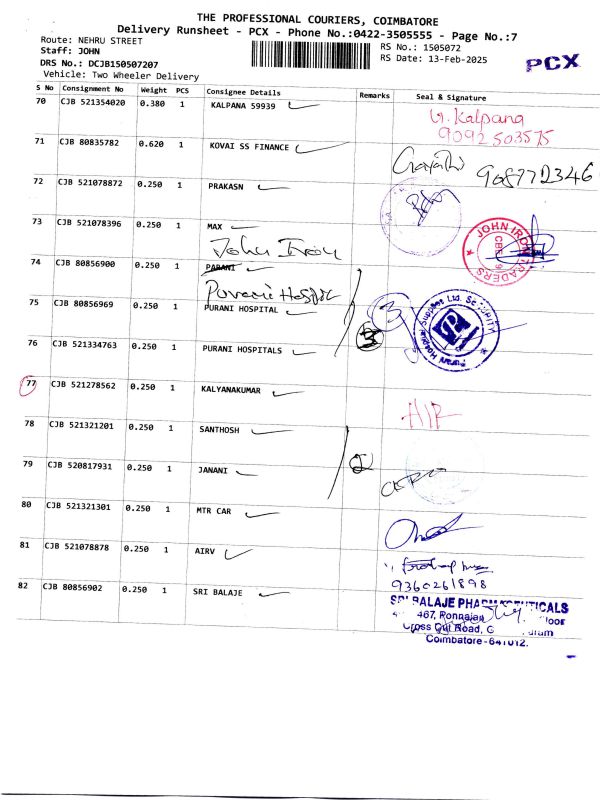 THE PROFESSIONAL COURIERS, COIMBATORE
Delivery Runsheet - PCX - Phone No.:0422-3505555 - Page No.:7
Route: NEHRU STREET
RS No.: 1505072
Staff: JOHN
RS Date: 13-Feb-2025
PCX
DRS No.: DCJB150507207
Vehicle: Two Wheeler Delivery
S No Consignment No Weight PCS Consignee Details Remarks Seal & Signature
70 CJB 521354020 0.380 1 KALPANA 59939
G. Kalpana
9092503575
71 CJB 80835782 0.620 1 KOVAI SS FINANCE
Gayathi
72 CJB 521078872 0.250 1 PRAKASN
73 CJB 521078396 0.250 1 MAX
John Iron
JOHN IRON TRADERS
CBE
74 CJB 80856900 0.250 1 PARANI
Purani Hospital
75 CJB 80856969 0.250 1 PURANI HOSPITAL
3
3
Purani Hospital Supplies Ltd. SECURITY
76 CJB 521334763 0.250 1 PURANI HOSPITALS
77 CJB 521278562 0.250 1 KALYANAKUMAR
78 CJB 521321201 0.250 1 SANTHOSH
79 CJB 520817931 0.250 1 JANANI
2
80 CJB 521321301 0.250 1 MTR CAR
81 CJB 521078878 0.250 1 AIRV
9360261898
82 CJB 80856902 0.250 1 SRI BALAJE
SRI BALAJE PHARMACEUTICALS
467, Ponnaian
Cross Cut Road, G
Coimbatore-641012.